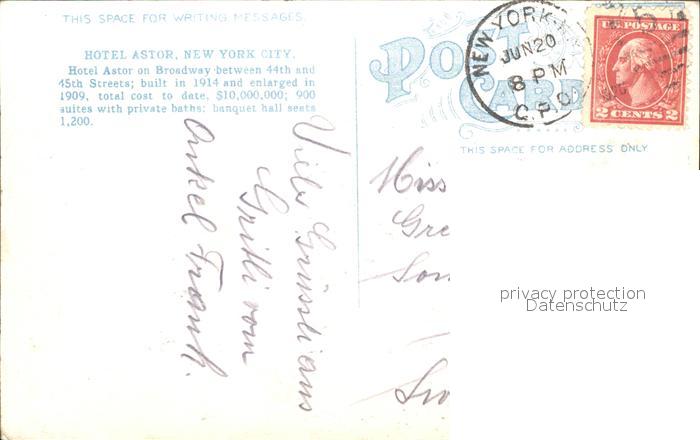 THIS SPACE FOR WRITING MESSAGES.
HOTEL ASTOR, NEW YORK CITY.
Hotel Astor on Broadway between 44th and
45th Streets; built in 1914 and enlarged in
1909, total cost to date, $10,000,000; 900
suites with private baths: banquet hall seats
1,200.
Viele Grüssli ans
Gritli vom
Onkel Frank.
POST
CARD
NEW YORK, N.Y.
JUN 20
8 PM
G.P.O.
U.S. POSTAGE
2 CENTS 2
THIS SPACE FOR ADDRESS ONLY
Miss
Gre
privacy protection
Datenschutz